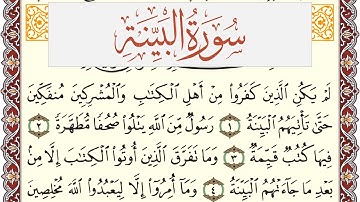 سُورَةُ البَيِّنَةِ
لَمْ يَكُنِ الَّذِينَ كَفَرُوا مِنْ أَهْلِ الْكِتَابِ وَالْمُشْرِكِينَ مُنفَكِّينَ
حَتَّى تَأْتِيَهُمُ الْبَيِّنَةُ ١ رَسُولٌ مِّنَ اللَّهِ يَتْلُوا صُحُفًا مُّطَهَّرَةً ٢
فِيهَا كُتُبٌ قَيِّمَةٌ ٣ وَمَا تَفَرَّقَ الَّذِينَ أُوتُوا الْكِتَابَ إِلَّا مِنْ
بَعْدِ مَا جَاءَتْهُمُ الْبَيِّنَةُ ٤ وَمَا أُمِرُوا إِلَّا لِيَعْبُدُوا اللَّهَ مُخْلِصِينَ